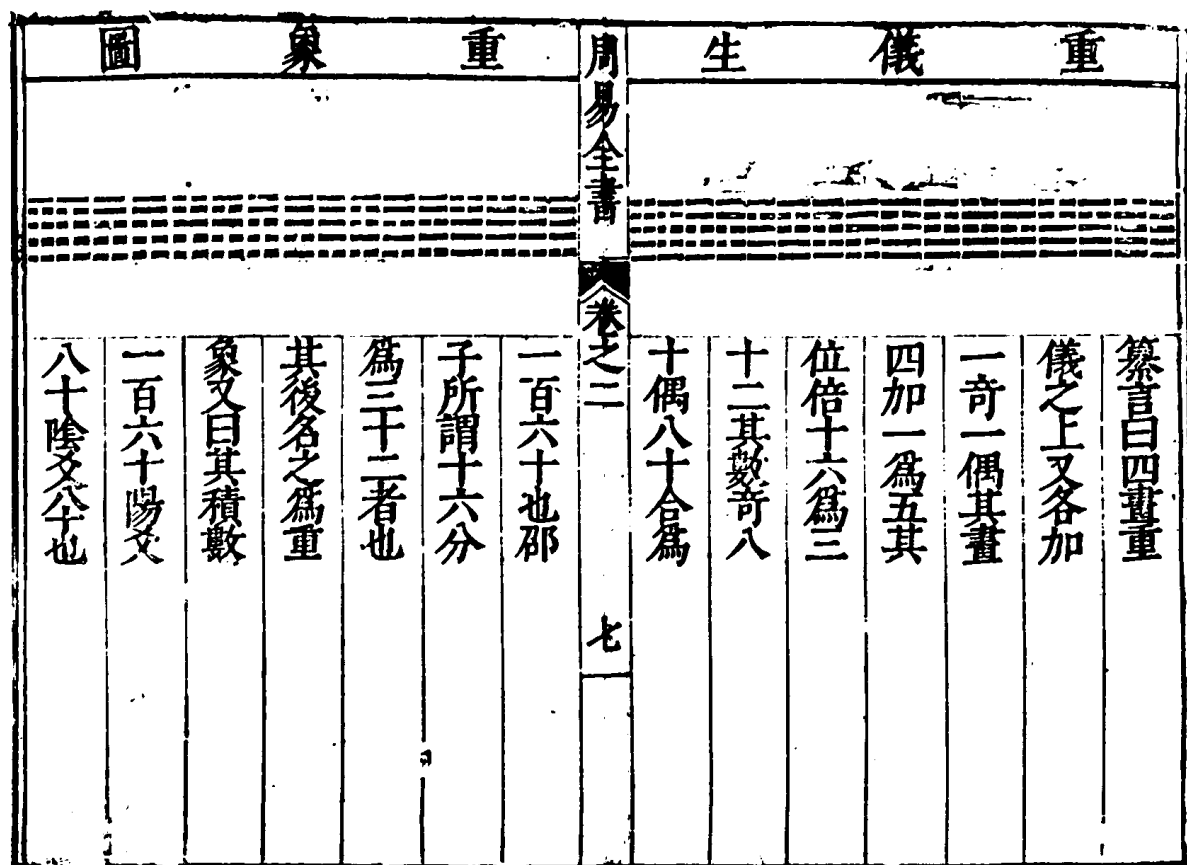 重儀生
纂言曰四畫重
儀之上又各加
一奇一偶其畫
四加一爲五其
位倍十六爲三
十二其數奇八
十偶八十合爲
周易全書
卷之二
七
重象圖
一百六十也邵
子所謂十六分
爲三十二者也
其後名之爲重
象又曰其積數
一百六十陽爻
八十陰爻八十也